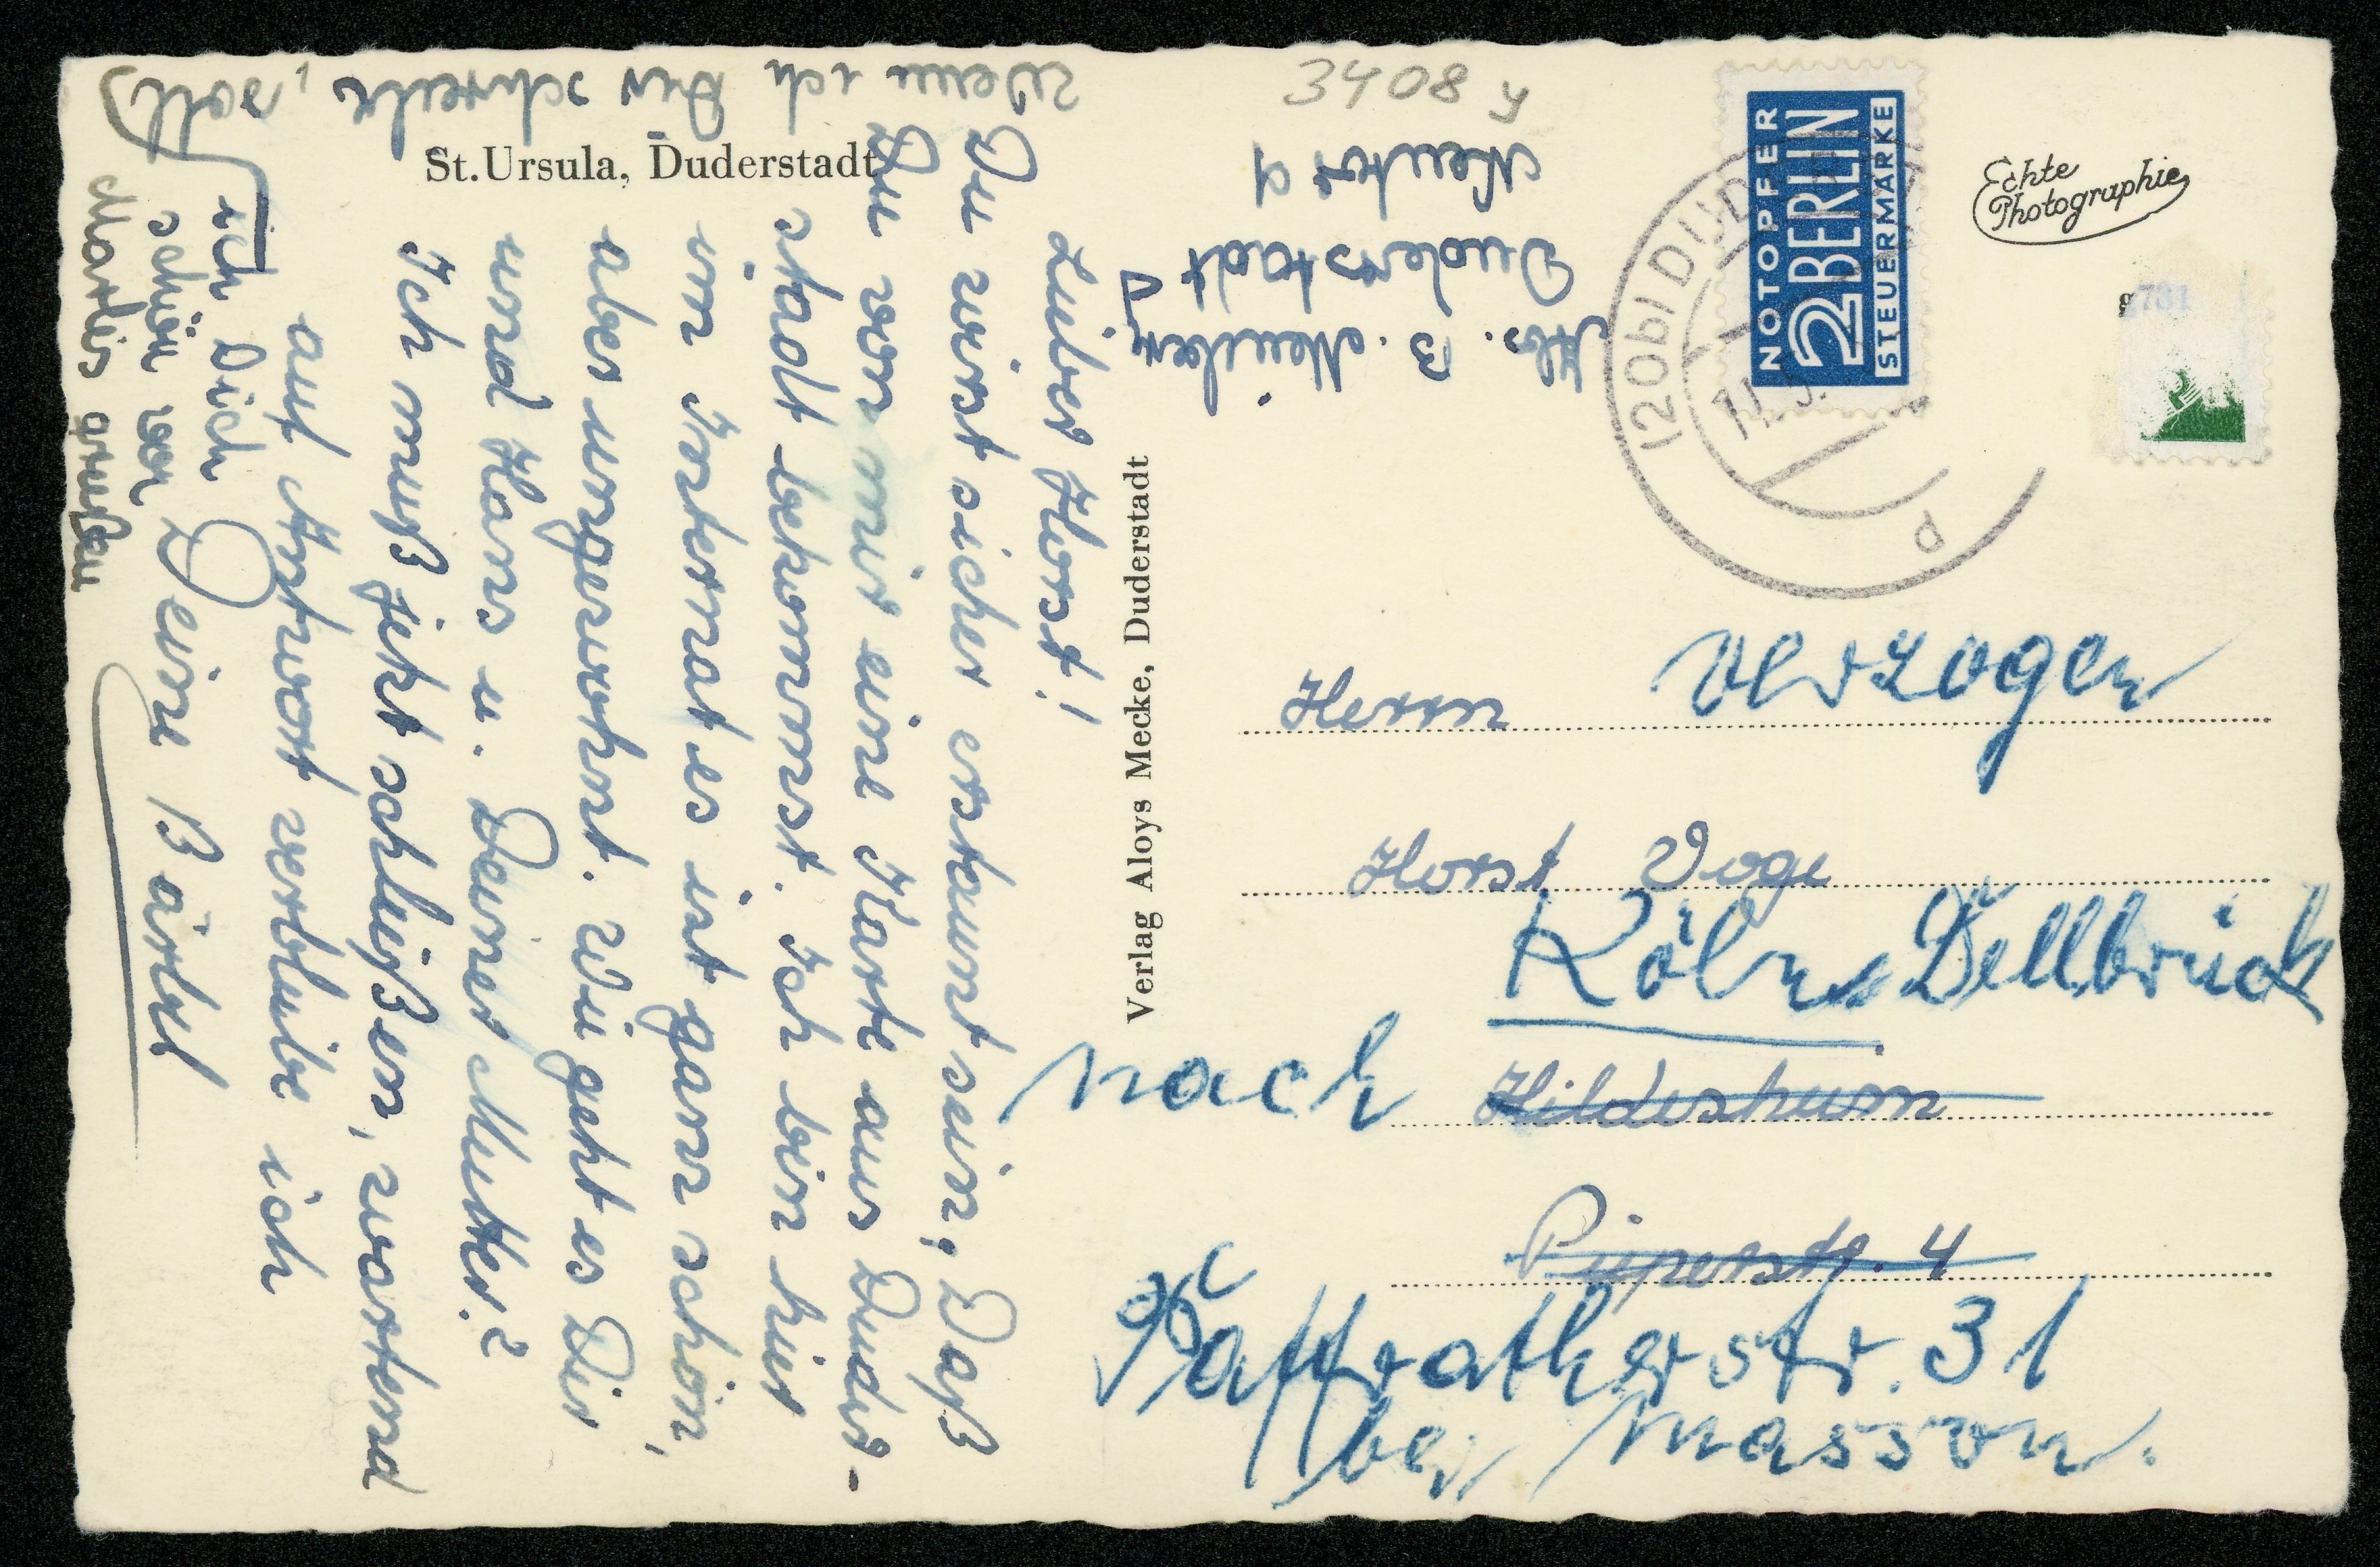 St. Ursula, Duderstadt
Lieber Horst!
Du wirst sicher erstaunt sein, Daß
Du von mir eine Karte aus Duder-
stadt bekommst. Ich bin hier
im Internat es ist ganz schön,
aber ungewohnt. Wie geht es Dir
und Hans u. Deiner Mutter?
Ich muß jetzt schließen, wartend
auf Antwort verbleibe ich
Deine Bärbel
Wenn ich Dir schreibe, soll
ich Dich
schön von
Marlis grüßen
Verlag Aloys Mecke, Duderstadt
3408 y
Abs. B.
Duderstadt
Neutor 2
NOTOPFER
2 BERLIN
STEUERMARKE
(20b) DUD
d
Echte
Photographie
Herrn
verzogen
Horst Voge
Köln Dellbrück
nach
Hildesheim
Piperstr. 4
Paffratherstr. 31
bei Masson.